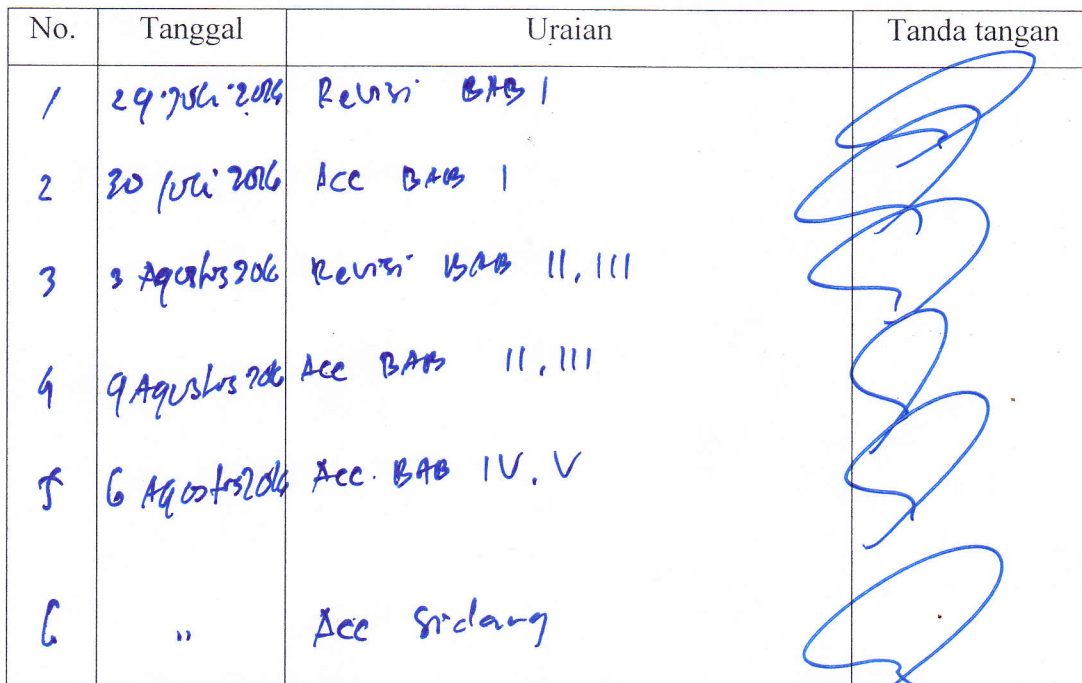 No. Tanggal Uraian Tanda tangan
1 29 Juli 2016 Revisi BAB I
2 30 Juli 2016 Acc BAB I
3 3 Agustus 2016 Revisi BAB II, III
4 Agustus 2016 Acc BAB II, III
5 6 Agustus 2016 Acc. BAB IV, V
6 " Acc Sidang